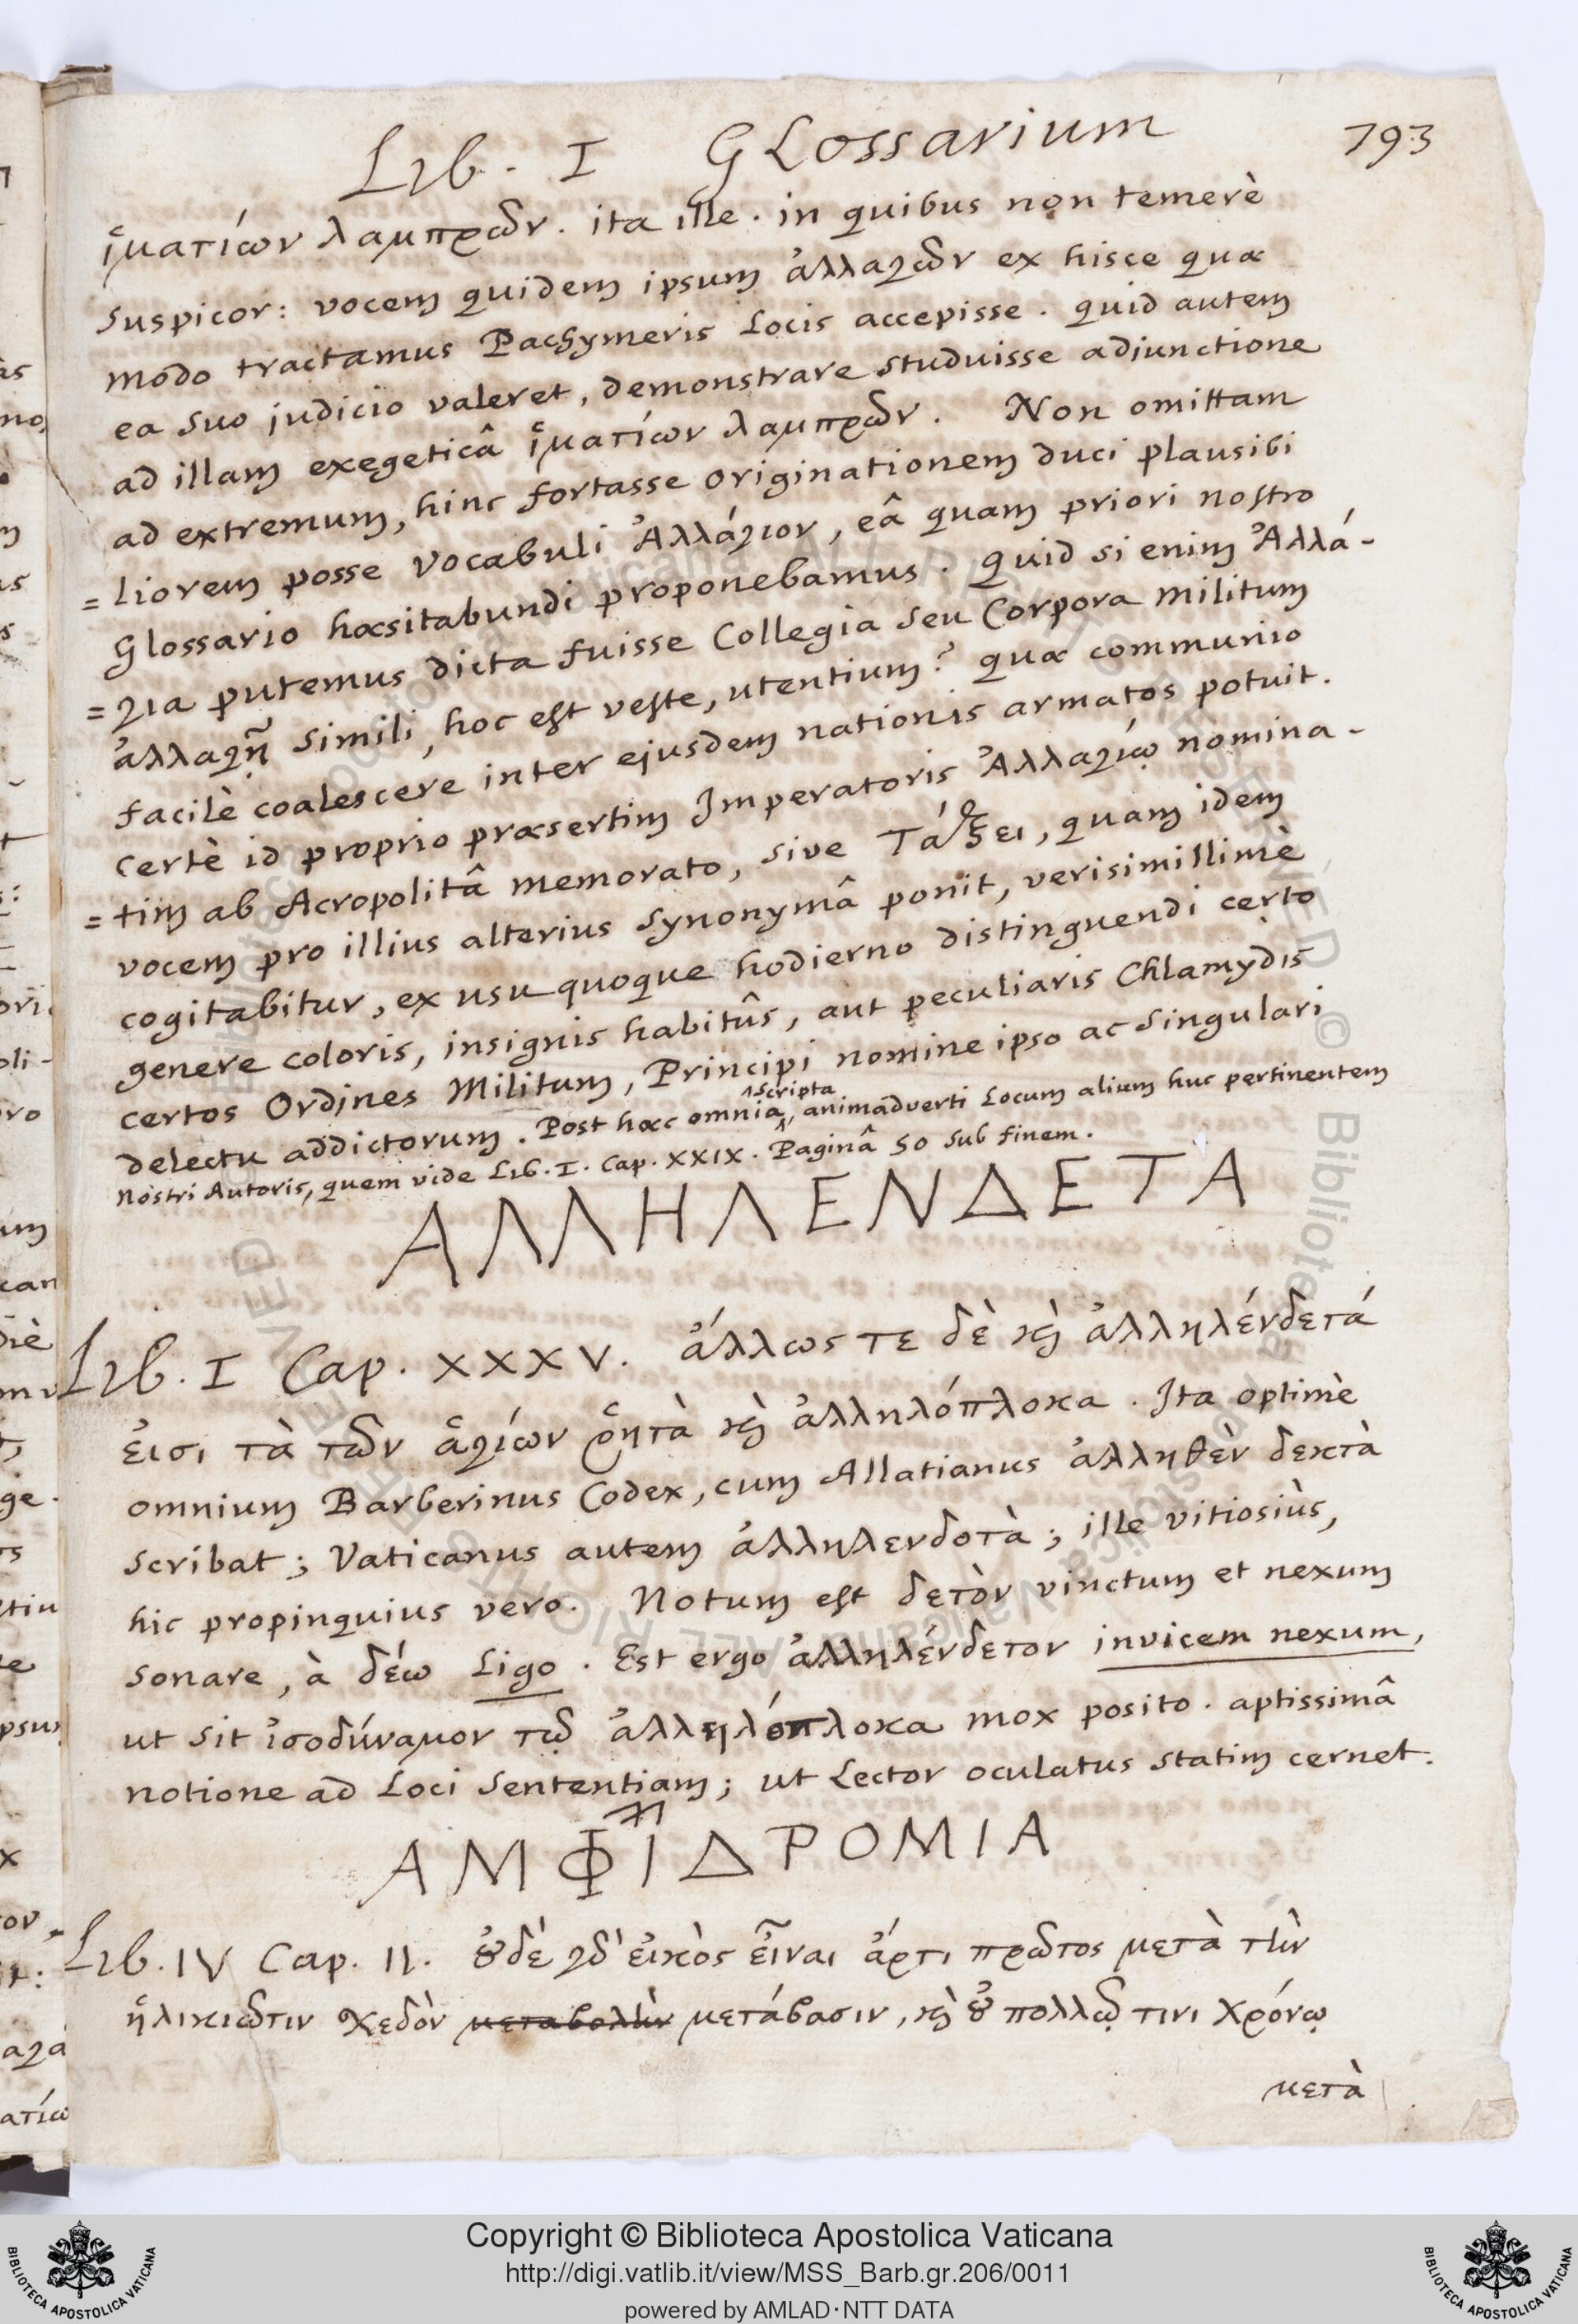 Lib. I Glossarium 793
ἱματίων λαμπρῶν. ita ille. in quibus non temerè
suspicor: vocem quidem ipsum ἀλλαγῶν ex hisce quæ
modo tractamus Pachymeris Locis accepisse. quid autem
ea suo judicio valeret, demonstrare studuisse adjunctione
ad illam exegeticâ ἱματίων λαμπρῶν. Non omittam
ad extremum, hinc fortasse originationem duci plausibi
=liorem posse vocabuli Ἀλλάγιον, eâ quam priori nostro
Glossario hæsitabundi proponebamus. quid si enim Ἀλλά-
=για putemus dicta fuisse Collegia seu Corpora militum
ἀλλαγῇ simili, hoc est veste, utentium? quæ communio
facilè coalescere inter ejusdem nationis armatos potuit.
certè id proprio præsertim Imperatoris Ἀλλαγίῳ nomina-
=tim ab Acropolitâ memorato, sive Τάξει, quam idem
vocem pro illius alterius synonymâ ponit, verisimillimè
cogitabitur, ex usu quoque hodierno distinguendi certo
genere coloris, insignis habitûs, aut peculiaris Chlamydis
certos Ordines Militum, Principi nomine ipso ac singulari
delectu addictorum. Post hæc omnia scripta, animadverti Locum alium huc pertinentem
Nostri Autoris, quem vide Lib. I. Cap. XXIX. Paginâ 50 sub finem.
ΑΛΛΗΛΕΝΔΕΤΑ
Lib. I Cap. XXXV. ἄλλως τε δὲ καὶ ἀλληλένδετά
εἰσι τὰ τῶν ἁγίων ῥητὰ καὶ ἀλληλόπλοκα. Ita optimè
omnium Barberinus Codex, cum Allatianus ἀλληθὲν δεκτὰ
scribat; Vaticanus autem ἀλληλενδοτὰ; ille vitiosiùs,
hic propinquius vero. Notum est δετὸν vinctum et nexum
sonare, à δέω Ligo. Est ergo ἀλληλένδετον invicem nexum,
ut sit ἰσοδύναμον τῷ ἀλληλόπλοκα mox posito. aptissimâ
notione ad Loci sententiam; ut Lector oculatus statim cernet.
ΑΜΦΙΔΡΟΜΙΑ
Lib. IV Cap. II. οὐδὲ γδ' εἰκὸς εἶναι ἄρτι πρῶτος μετὰ τὴν
ἡλικιῶτιν σχεδὸν μεταβολὴν μετάβασιν, καὶ οὐ πολλῷ τινι χρόνῳ
μετὰ
Copyright © Biblioteca Apostolica Vaticana
http://digi.vatlib.it/view/MSS_Barb.gr.206/0011
powered by AMLAD·NTT DATA
BIBLIOTECA APOSTOLICA VATICANA
BIBLIOTECA APOSTOLICA VATICANA